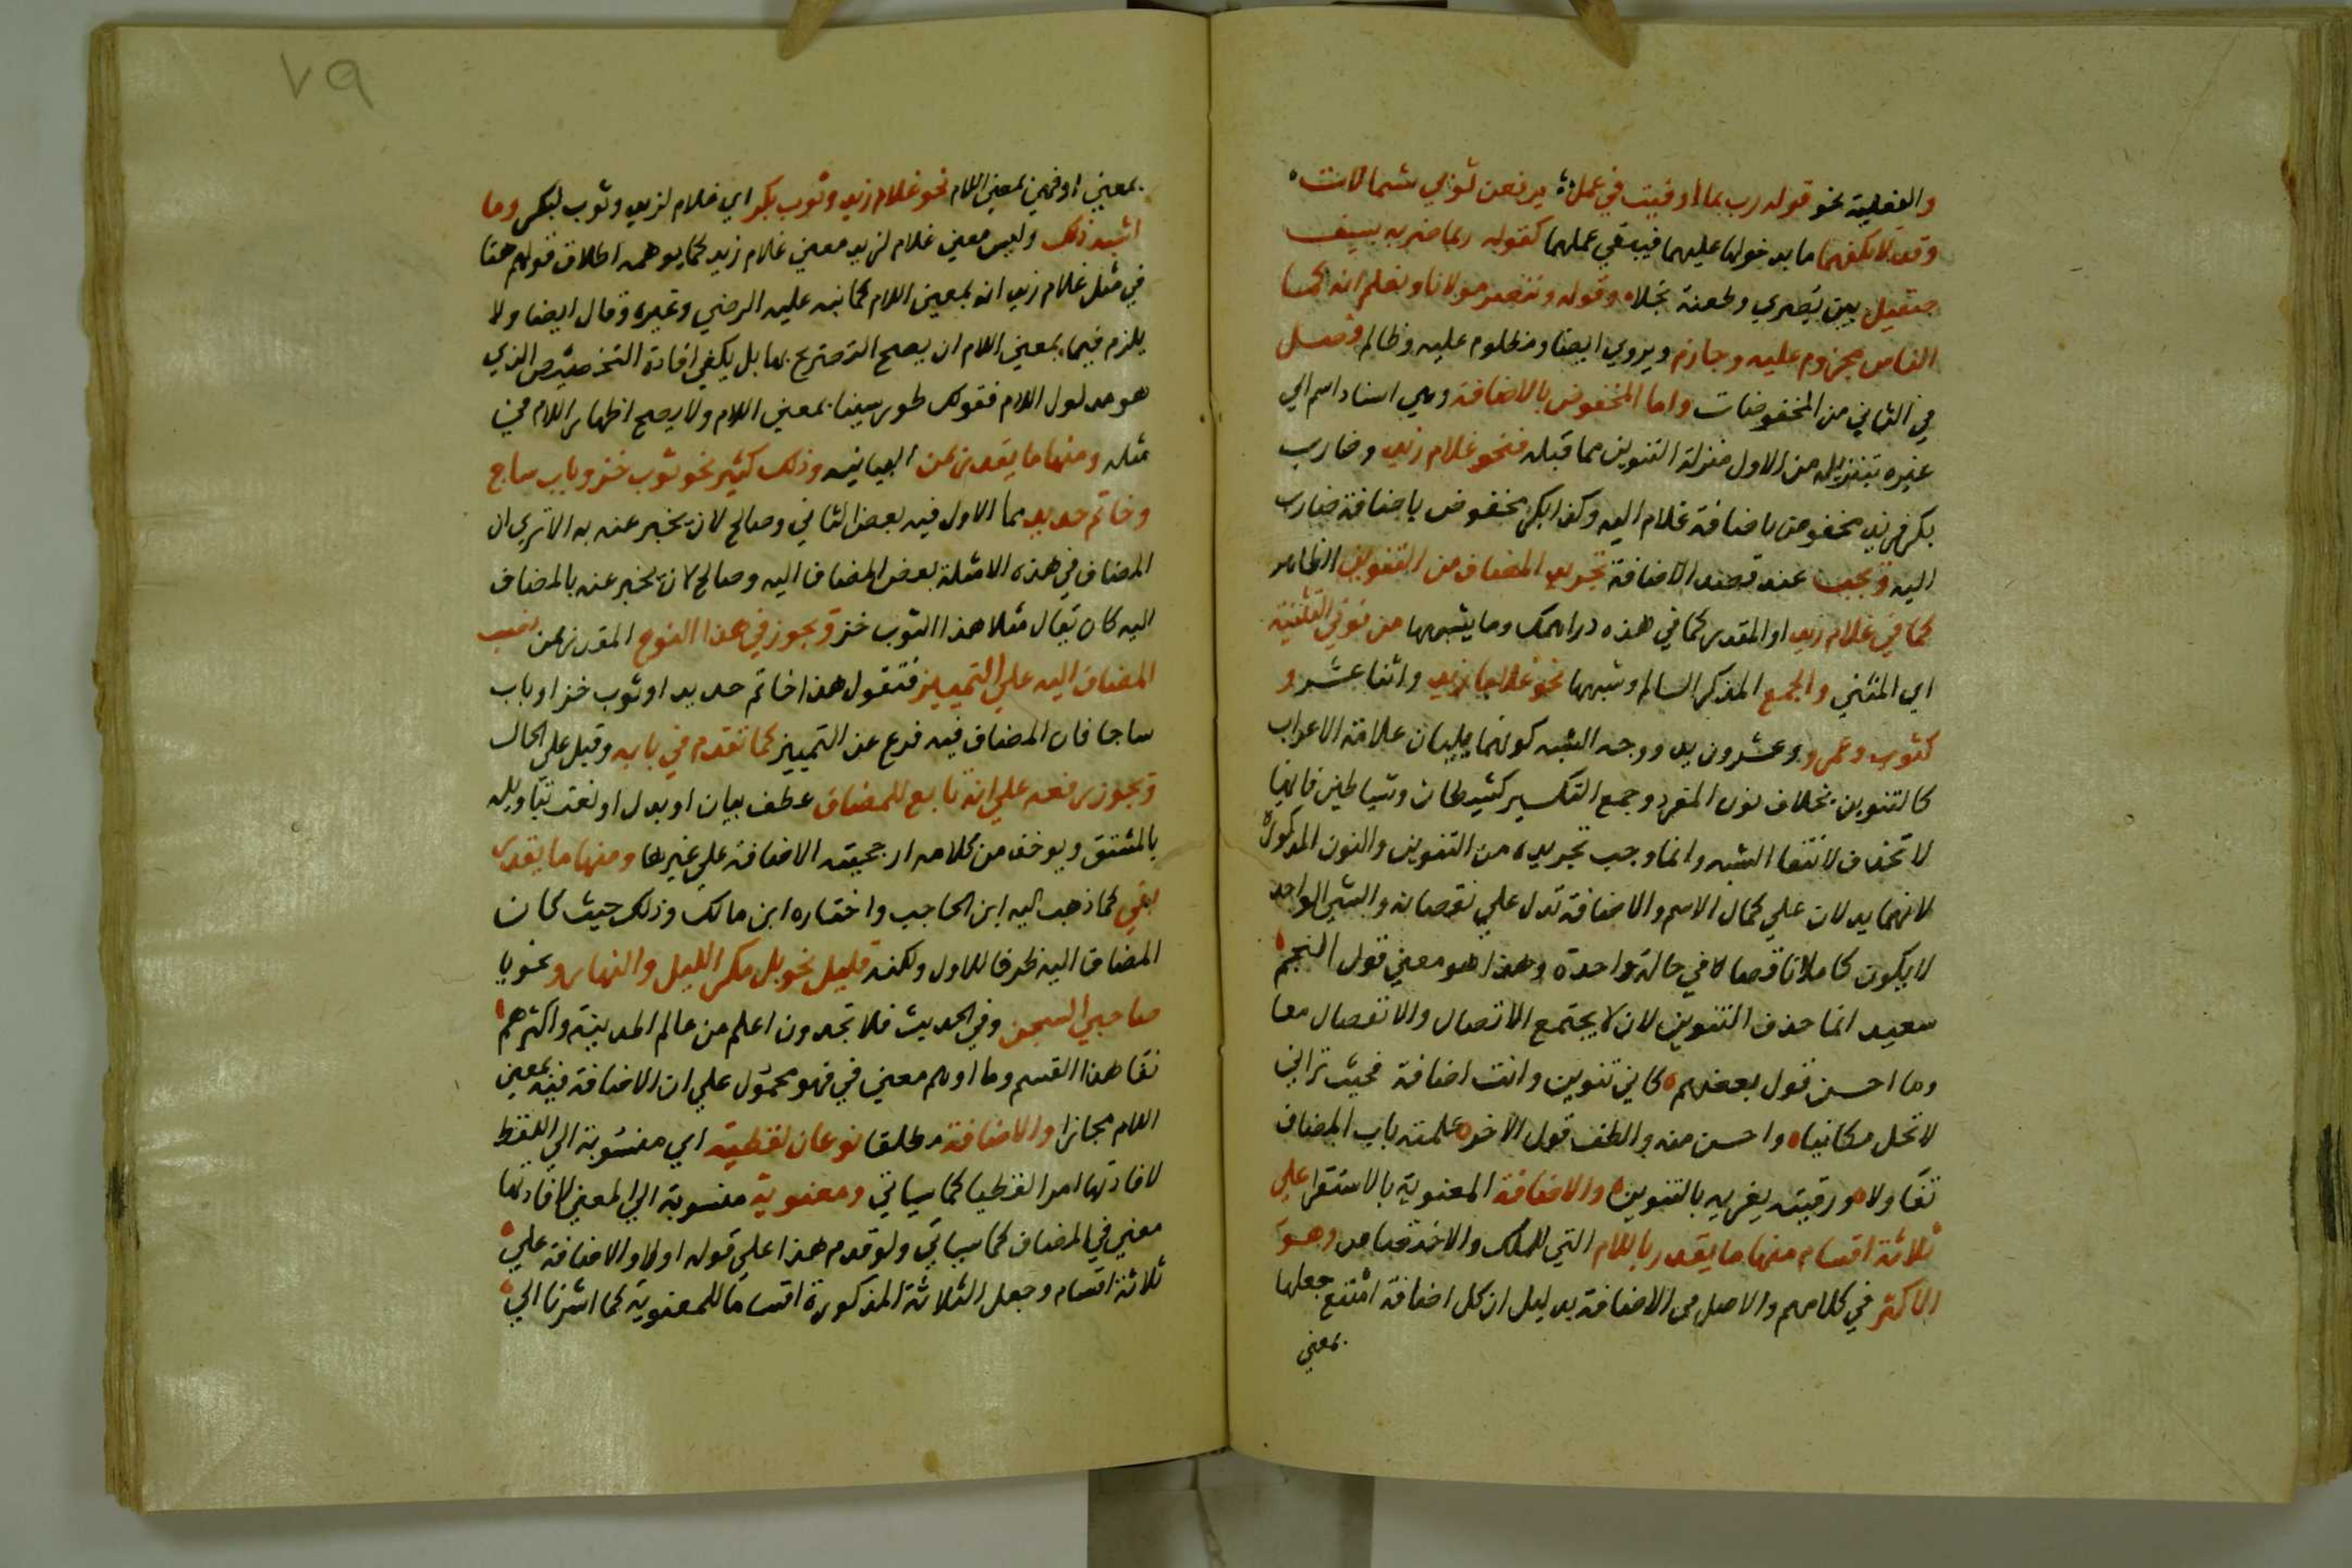 والفعلية نحو قوله ربما أوفيت في علم ترفعن ثوبي شمالات
وقد لا تكفهما ما بدخولها عليهما فيبقي عملهما كقوله ربما ضربة بسيف
صقيل بين بصري وطعنة نجلاء وقوله وننصر مولانا ونعلم انه كما
الناس مجروم عليه وجارم ويروي ايضا ومظلوم عليه وظالم فصل
في الثاني من المخفوضات واما المخفوض بالاضافة وهي اسناد اسم الي
غيره بتنزيله من الاول منزلة التنوين مما قبله فنحو غلام زيد وضارب
بكر فزيد مخفوض باضافة غلام اليه وكذا بكر مخفوض باضافة ضارب
اليه ويجب عند قصد الاضافة تجريد المضاف من التنوين الظاهر
كما في غلام زيد او المقدر كما في هذه دراهمك وما يشبهها من نوني التثنية
اي المثني والجمع المذكر السالم وشبهها نحو غلاما زيد واثنا عشر و
كتوب وعمرو وعشرون يد ووجه الشبه كونهما يليان علامة الاعراب
كالتنوين بخلاف نون المفرد وجمع التكسير كشيطان وشياطين فانها
لا تحذف لانتفا الشبه وانما وجب تجريده من التنوين والنون المذكورة
لانهما يدلان علي كمال الاسم والاضافة تدل علي نقصانه والشي الواحد
لا يكون كاملا ناقصا في حالة واحدة وهذا هو معني قول النجم
سعيد انما حذف التنوين لان لا يجتمع الاتصال والانفصال معا
وما احسن قول بعضهم كاني تنوين وانت اضافة فحيث تراني
لا تحل مكانيا واحسن منه والطف قول الاخر علمته باب المضاف
تفاولا ورقيبه يغريه بالتنوين والاضافة المعنوية بالاستقرا علي
ثلاثة اقسام منها ما يقدر باللام التي للملك والاختصاص وهو
الاكثر في كلامهم والاصل في الاضافة بدليل ان كل اضافة امتنع جعلها
بمعني
٧٩
بمعني او فهي بمعني اللام نحو غلام زيد وثوب بكر اي غلام لزيد وثوب لبكر وما
اشبه ذلك وليس معني غلام لزيد معني غلام زيد كما يوهمه اطلاق قولهم هنا
في مثل غلام زيد انه بمعني اللام كما نبه عليه الرضي وغيره وقال ايضا ولا
يلزم فيما بمعني اللام ان يصح التصريح بها بل يكفي افادة التخصيص الذي
هو مدلول اللام فقولك طور سينا بمعني اللام ولا يصح اظهار اللام في
مثله ومنها ما يقدر بمن البيانيه وذلك كثير نحو ثوب خز وباب ساج
وخاتم حديد مما الاول فيه بعض الثاني وصالح لان يخبر عنه به الا تري ان
المضاف في هذه الامثلة بعض المضاف اليه وصالح لان يخبر عنه بالمضاف
اليه كان يقال مثلا هذا الثوب خز ويجوز في هذا النوع المقدر بمن نصب
المضاف اليه علي التمييز فتقول هذا خاتم حديد او ثوب خز او باب
ساجا فان المضاف فيه فرع عن التمييز كما تقدم في بابه وقيل علي الحال
ويجوز رفعه علي انه تابع للمضاف عطف بيان او بدل او نعت بتاويله
بالمشتق ويوخذ من كلامه ارجحيته الاضافة علي غيرها ومنها ما يقدر
بفي كما ذهب اليه ابن الحاجب واختاره ابن مالك وذلك حيث كان
المضاف اليه ظرفا للاول ولكنه قليل نحو بل مكر الليل والنهار ونحو يا
صاحبي السجن وفي الحديث فلا تجدون اعلم من عالم المدينة واكثرهم
نفا هذا القسم وما اوهم معني في فهو محمول علي ان الاضافة فيه بمعني
اللام مجازا والاضافة مطلقا نوعان لفظية اي منسوبة الي اللفظ
لافادتها امرا لفظيا كما سياتي ومعنوية منسوبة الي المعني لافادتها
معني في المضاف كما سياتي ولو قدم هذا علي قوله اولا والاضافة علي
ثلاثة اقسام وجعل الثلاثة المذكورة اقساما للمعنوية كما اشرنا الي